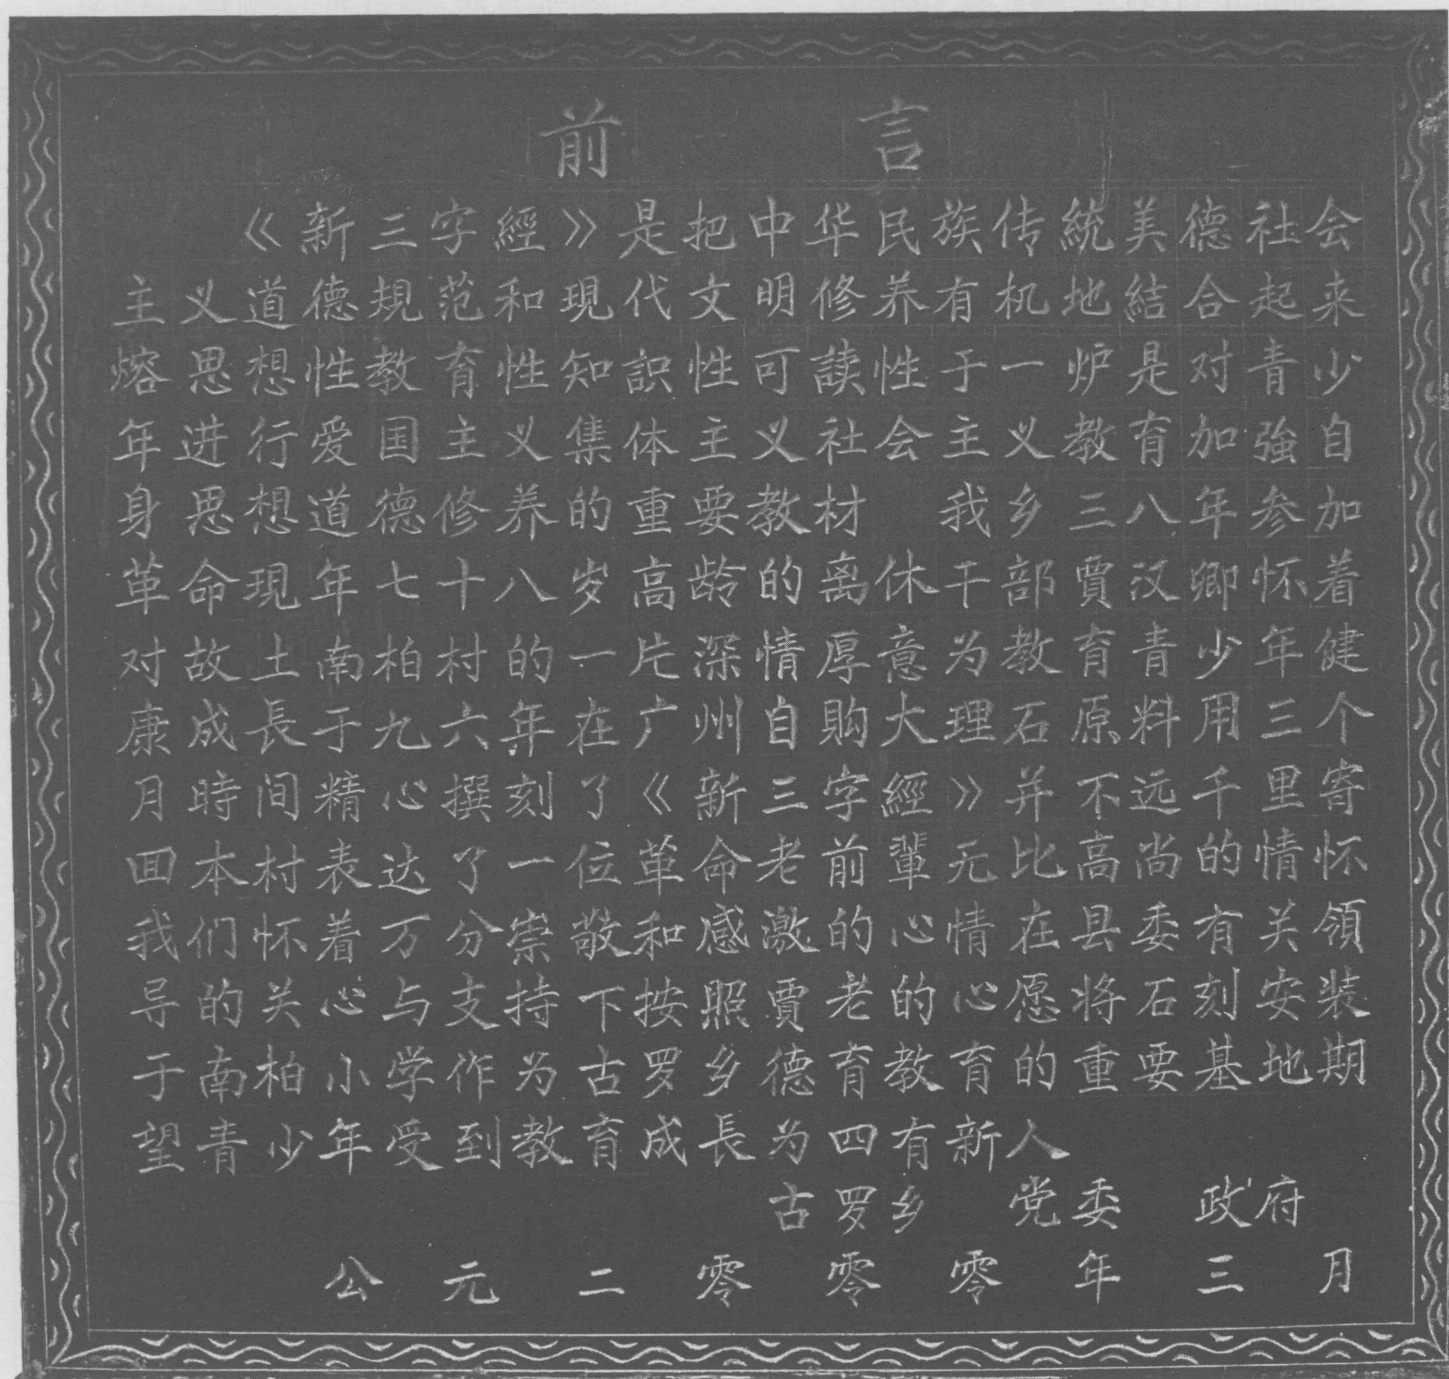 前言
《新三字經》是把中华民族传統美德社会
主义道德規范和現代文明修养有机地結合起来
熔思想性教育性知識性可讀性于一炉是对青少
年进行爱国主义集体主义社会主义教育加強自
身思想道德修养的重要教材 我乡三八年参加
革命現年七十八岁高龄的离休干部賈汉卿怀着
对故土南柏村的一片深情厚意为教育青少年健
康成長于九六年在广州自購大理石原料用三个
月時间精心撰刻了《新三字經》并不远千里寄
回本村表达了一位革命老前輩无比高尚的情怀
我们怀着万分崇敬和感激的心情在县委有关領
导的关心与支持下按照賈老的心愿将石刻安装
于南柏小学作为古罗乡德育教育的重要基地期
望青少年受到教育成長为四有新人
古罗乡 党委 政府
公元二零零零年三月